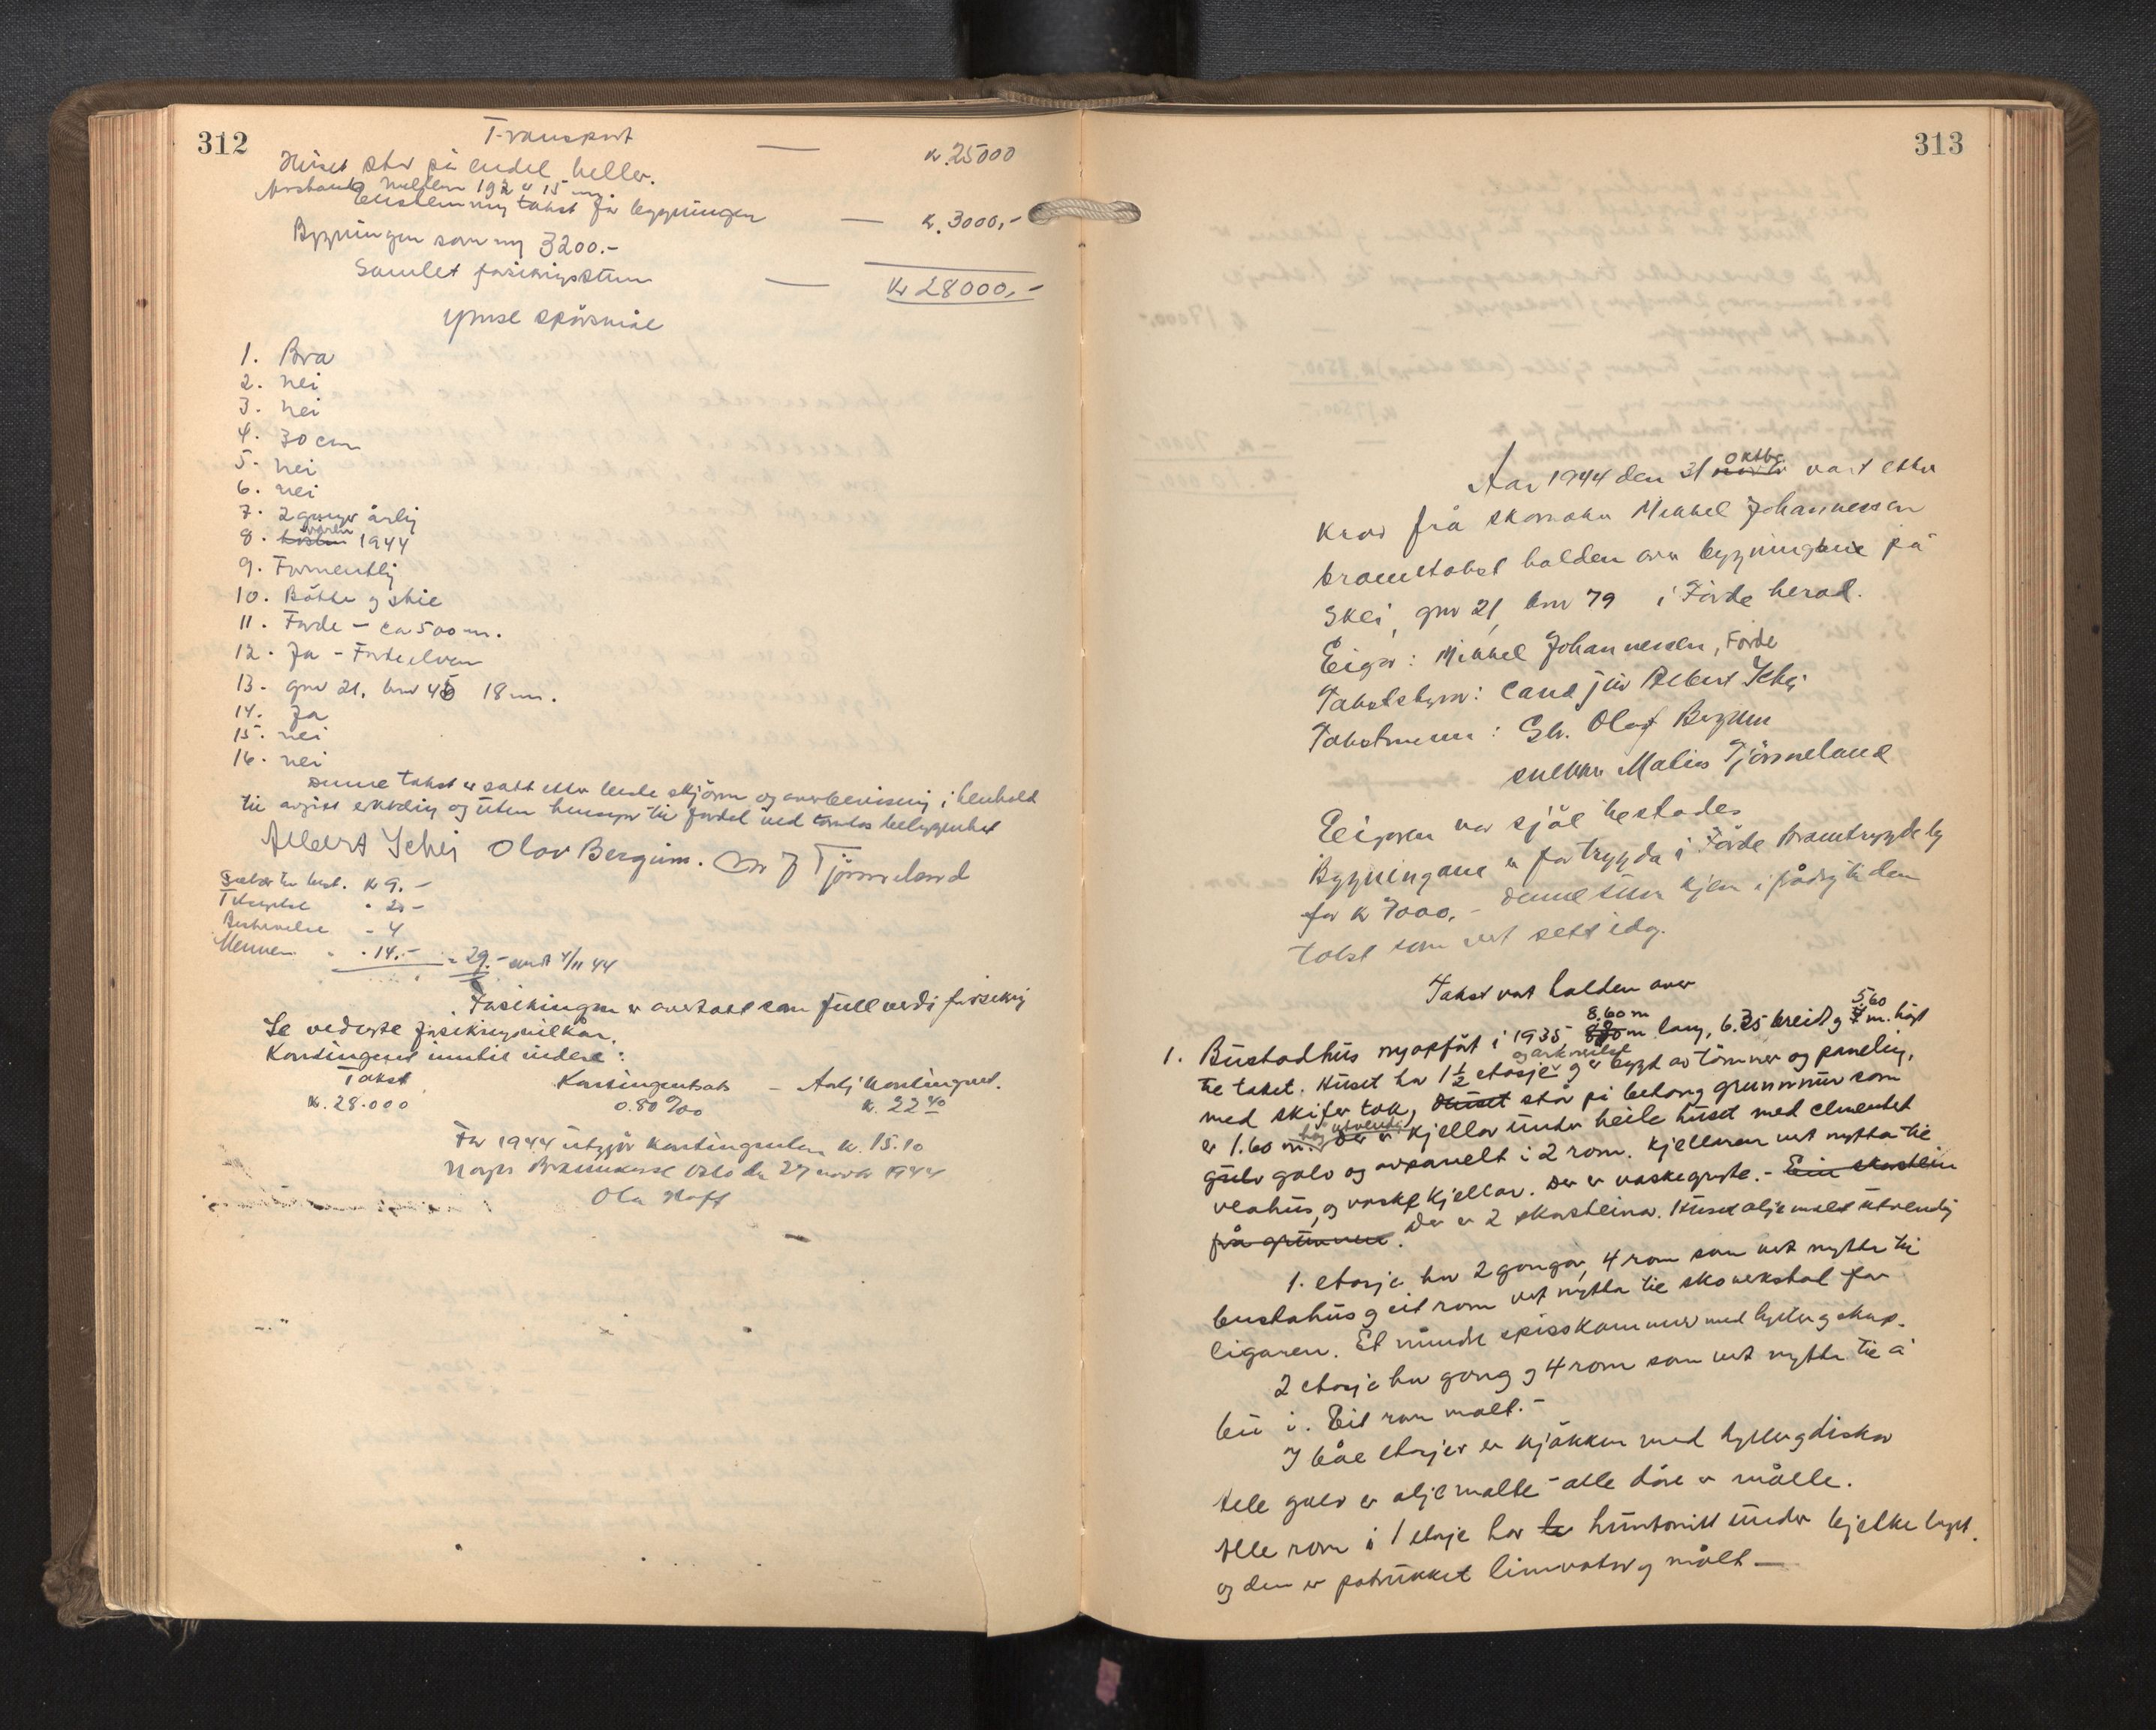 312
Transport
Huset står på endel heller. kr. 25000
Avstand mellem 1 og 2 er 15 m.
takst for bygningen kr. 3000,-
Bygningen som ny 3200.-
Samlet forsikringssum kr 28000,-
Ymse spörsmål
1. Bra
2. nei
3. nei
4. 30 cm
5. nei
6. nei
7. 2 ganger årlig
8. hösten våren 1944
9. Forsvarlig
10. Bötte og stie
11. Förde - ca 500 m.
12. Ja - Fördeelven
13. gnr 21, bnr 45 18 m.
14. Ja
15. nei
16. nei
Denne takst er satt etter beste skjönn og overbevisning i henhold
til avgitt erklæring og uten hensyn til fordel ved tomtas beliggenhet
Albert Schei Olav Bergum. M J Tjönneland
kr 9.-
2.-
Beskrivelse - 4
Mennene - 14.- = 29.- sendt 4/11 44
Forsikringen er overtatt som fullverdiforsikring
Se vedheftede forsikringsvilkår.
Kontingent inntil videre:
Takst Kontingentsats - Årlig kontingent.
kr. 28.000 0.80 ‰ kr. 22 40
For 1944 utgjör kontingenten kr. 15.10
Norges Brannkasse Oslo den 27 novbr 1944
Ola Hoff
313
Aar 1944 den 31 novbr oktbr vart etter
krav frå skomakar Mikkel Johannessen
branntakst halden over bygningane på
Skei, gnr 21, bnr 79 i Förde herad.
Eigar: Mikkel Johannessen, Förde
Takststyrar: Cand jur Albert Schei
Takstmenn: Gbr. Olaf Bergum
snekkar Matias Tjönneland
Eigaren var sjöl tilstades
Bygningane er for trygda i Förde Branntrygdelag
for kr 7000.- Denne sum kjem i frådrag til den
takst som vert sett idag.
Takst vart halden over
1. Bustadhus nyoppfört i 1935 8.60 m lang, 6.35 breidt og 5.60 m. högt
til taket. Huset har 1½ etasje og arkvelst og er bygt av tömmer og paneling,
med skifer tak, Huset står på betong grunnmur som
er 1.60 m. høg utvendig Der er kjellar under heile huset med cementert
gulv golv og avpanelt i 2 rom. Kjellaren vert nytta til
vedhus, og vaskekjellar. Der er vaskegryte. - Ein skorstein
frå grunnen. Der er 2 skorsteinar. Huset oljemalt utvendig
1. etasje har 2 gongar, 4 rom som vert nytta til
bustahus og eit rom vert nytta til skoverkstad for
eigaren. Et mindre spisskammer med hyller og skap.
2 etasje har gong og 4 rom som vert nytta til å
bu i. Eit rom malt.-
I båe etasjer er kjökken med hyller og diskar
Alle golv er oljemalte - alle dörer er målte.
Alle rom i 1 etasje har le huntonitt under bjelkelaget.
og den er patrukket limvatn og målt -